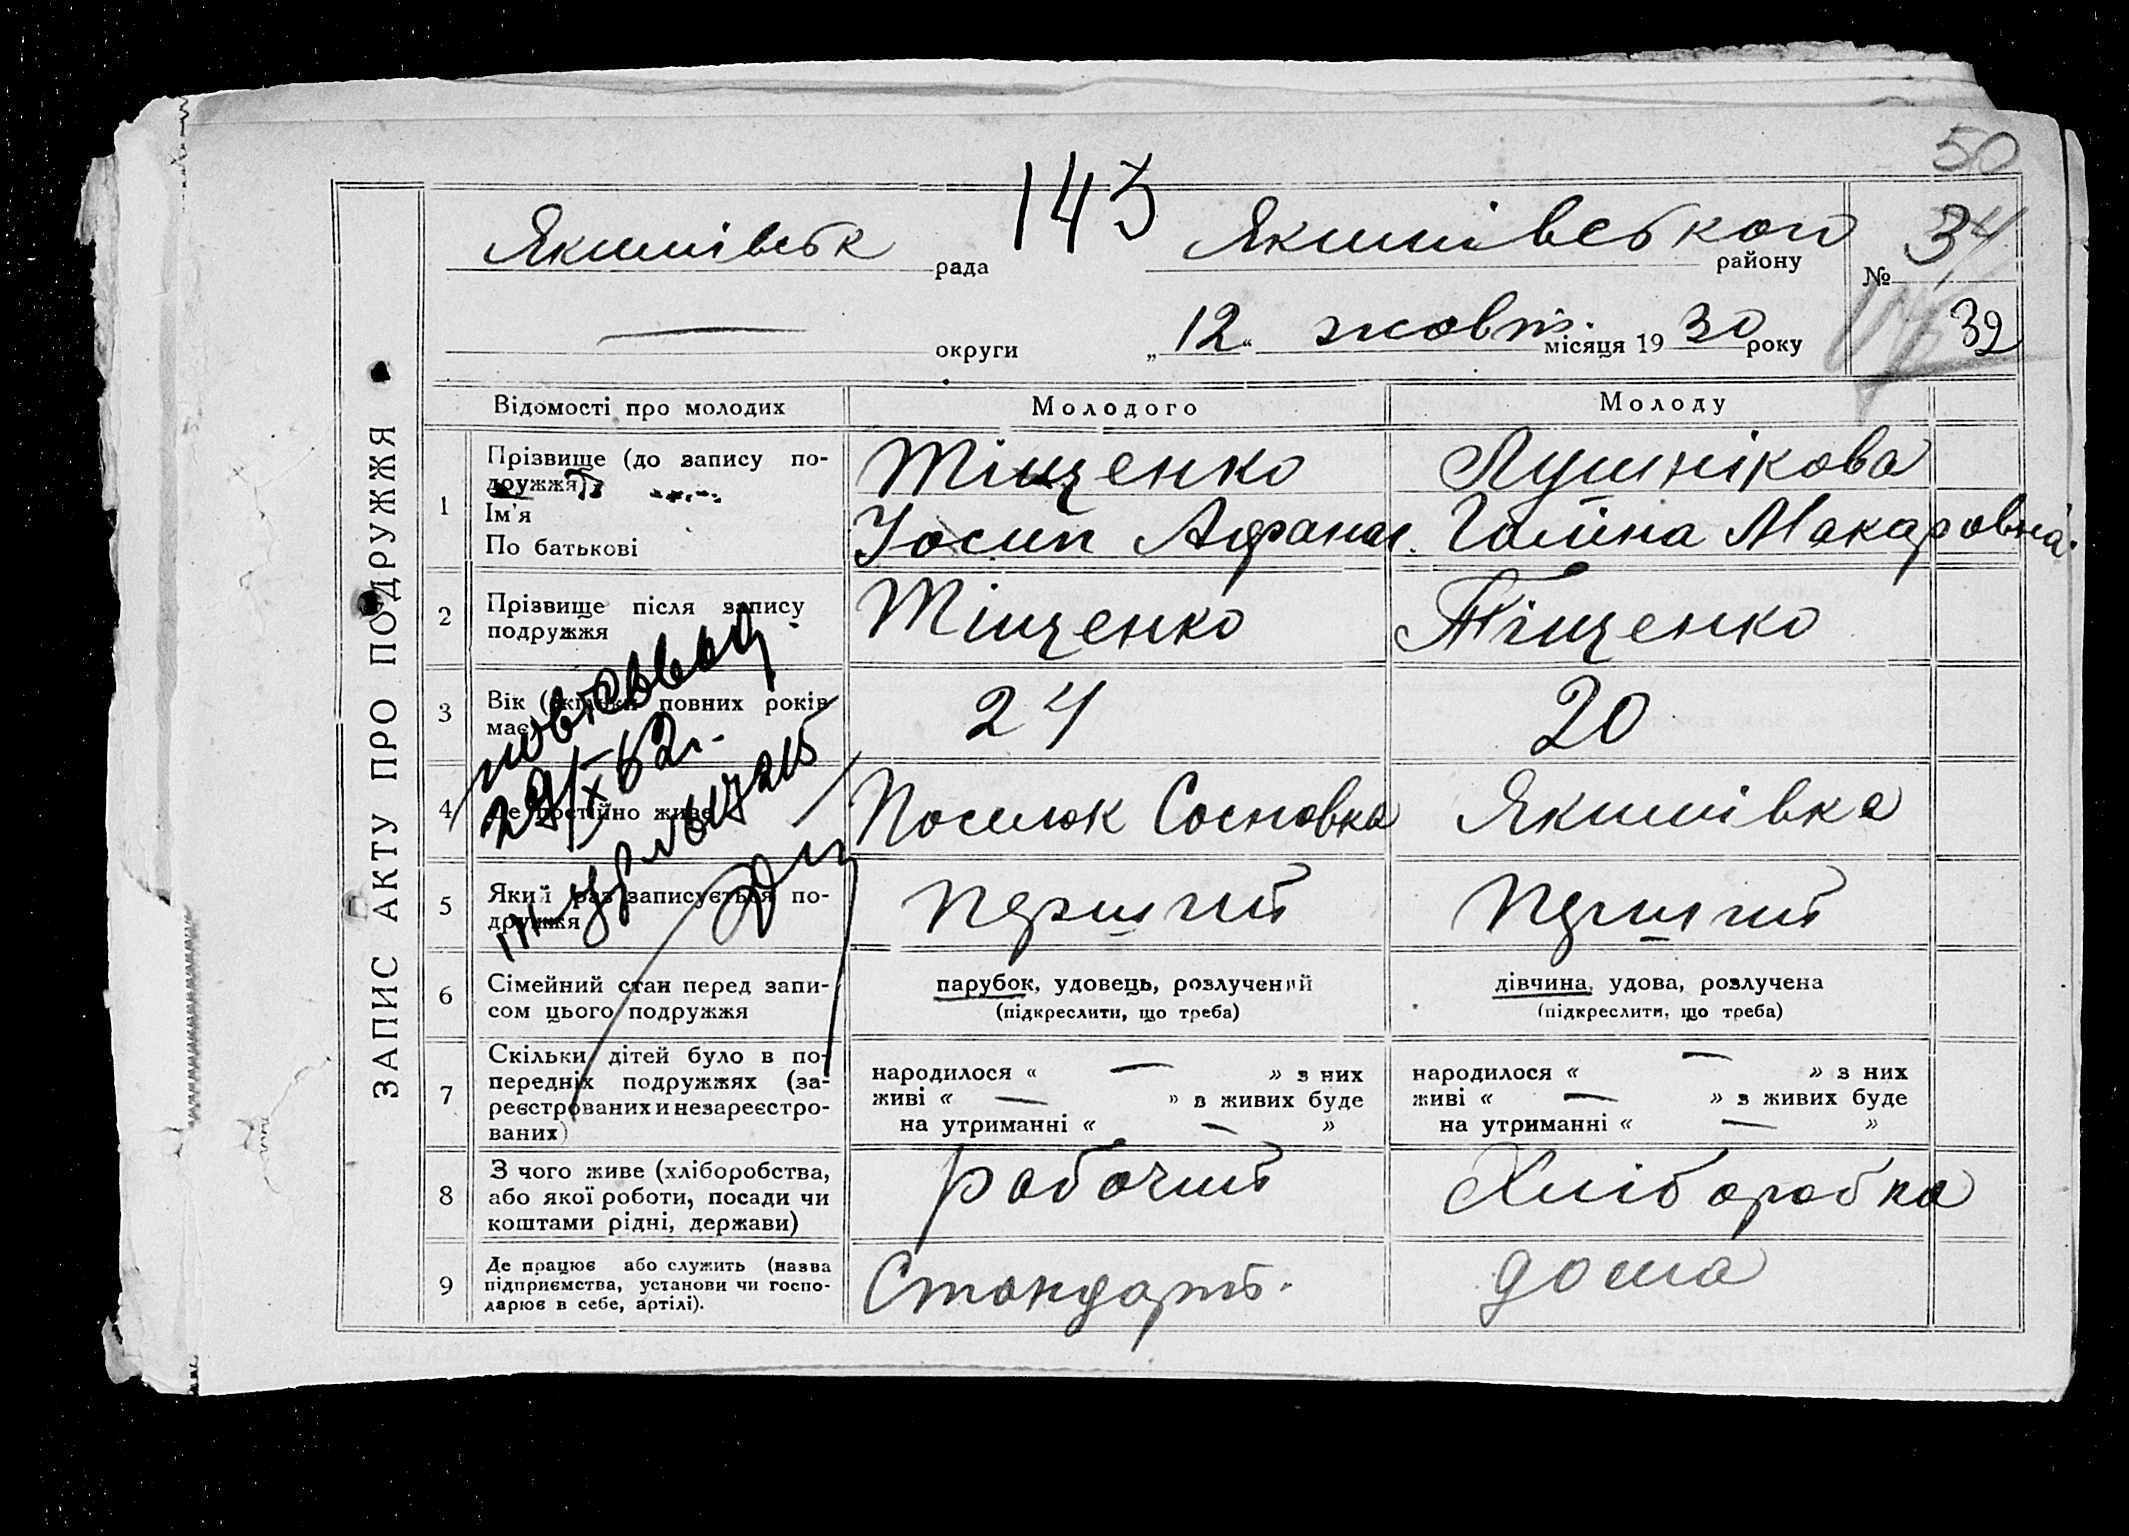 50
143
Якимівськ рада Якимівського району № 34
округи „12“ жовт. місяця 1930 року 39
ЗАПИС АКТУ ПРО ПОДРУЖЖЯ
Відомості про молодих Молодого Молоду
1 Прізвище (до запису по-
дружжя)
Тіщенко Лушнікова
Ім'я
По батькові
Йосип Афанас. Галина Макаровна.
2 Прізвище після запису
подружжя
Тіщенко Тіщенко
3 Вік (скільки повних років
має)
24 20
4 Де постійно живе
Посилок Сосновка Якимівка
5 Який раз записується по-
дружжя
Перший Перший
6 Сімейний стан перед запи-
сом цього подружжя
парубок, удовець, розлучений
(підкреслити, що треба)
дівчина, удова, розлучена
(підкреслити, що треба)
7 Скільки дітей було в по-
передніх подружжях (за-
реєстрованих и незареєстро-
ваних)
народилося « — » з них
живі « — » в живих буде
на утриманні « — »
народилося « — » з них
живі « — » з живих буде
на утриманні « — »
8 З чого живе (хліборобства,
або якої роботи, посади чи
коштами рідні, держави)
рабочий Хліборобка
9 Де працює або служить (назва
підприємства, установи чи госпо-
дарює в себе, артілі).
Стандарт. дома
повтсввид
29/IX 62 г.